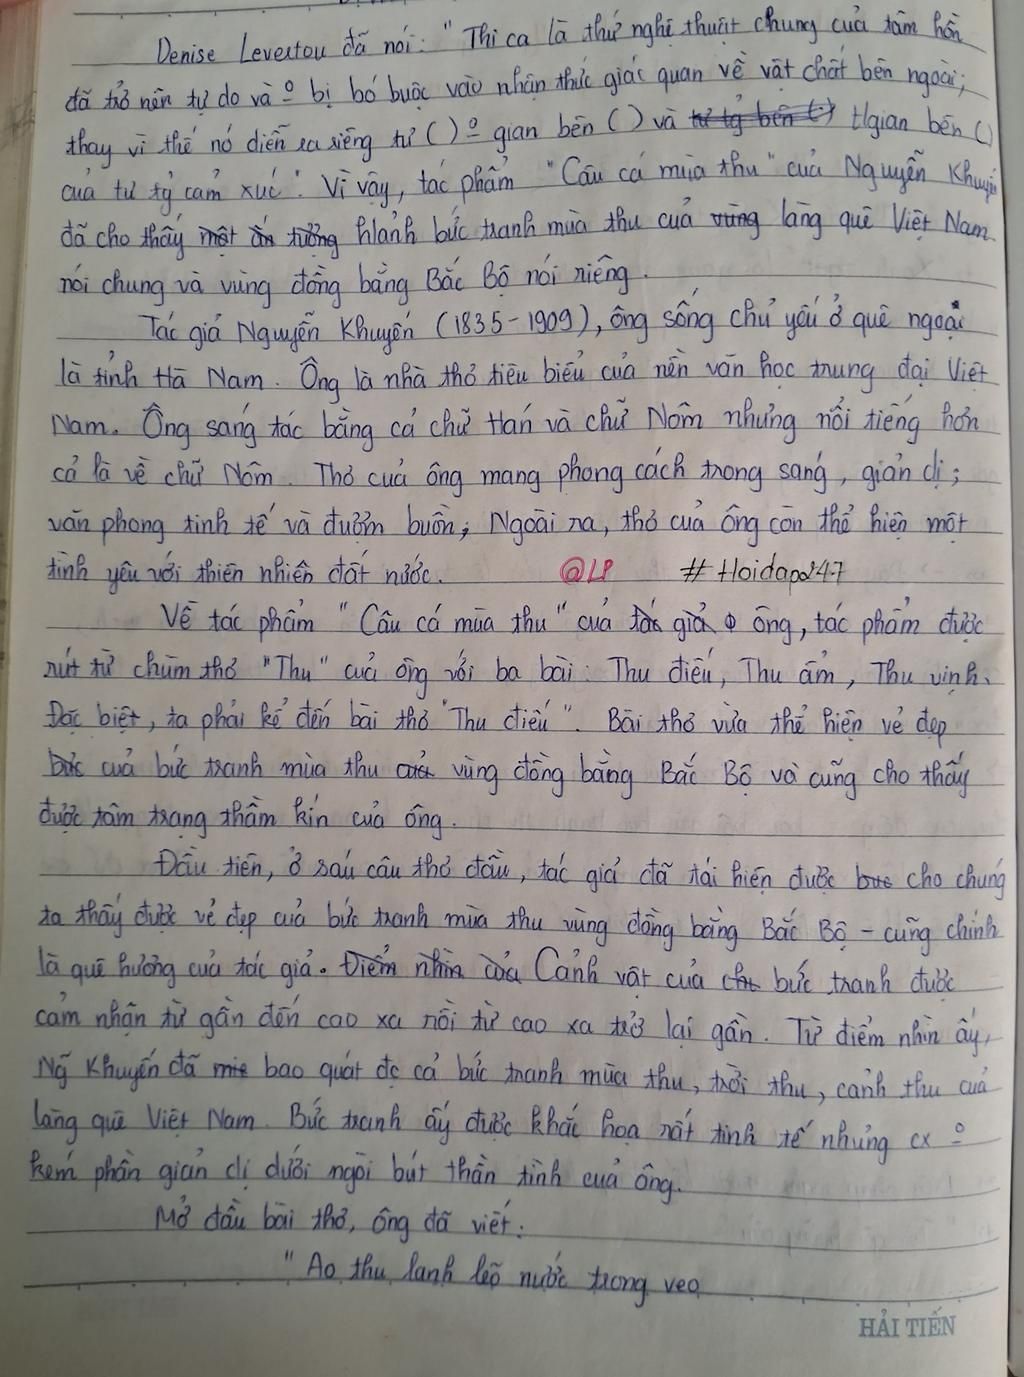 Denise Levertou đã nói: "Thi ca là thứ nghệ thuật chung của tâm hồn
đã trở nên tự do và º bị bó buộc vào nhận thức giác quan về vật chất bên ngoài;
thay vì thế nó diễn ra riêng tư ( ) º gian bên ( ) và tgian bên ( )
của tư tg cảm xúc". Vì vậy, tác phẩm "Câu cá mùa thu" của Nguyễn Khuyến
đã cho thấy một ấn tượng hlảnh bức tranh mùa thu của vùng làng quê Việt Nam
nói chung và vùng đồng bằng Bắc Bộ nói riêng.
Tác giả Nguyễn Khuyến (1835-1909), ông sống chủ yếu ở quê ngoại
là tỉnh Hà Nam. Ông là nhà thơ tiêu biểu của nền văn học trung đại Việt
Nam. Ông sáng tác bằng cả chữ Hán và chữ Nôm nhưng nổi tiếng hơn
cả là về chữ Nôm. Thơ của ông mang phong cách trong sáng, giản dị;
văn phong tinh tế và đượm buồn; Ngoài ra, thơ của ông còn thể hiện một
tình yêu với thiên nhiên đất nước. @LP #Hoidap247
Về tác phẩm "Câu cá mùa thu" của tác giả ông, tác phẩm được
rút từ chùm thơ "Thu" của ông với ba bài: Thu điếu, Thu ẩm, Thu vịnh.
Đặc biệt, ta phải kể đến bài thơ "Thu điếu". Bài thơ vừa thể hiện vẻ đẹp
bức của bức tranh mùa thu của vùng đồng bằng Bắc Bộ và cũng cho thấy
được tâm trạng thầm kín của ông.
Đầu tiên, ở sáu câu thơ đầu, tác giả đã tái hiện được bức cho chúng
ta thấy được vẻ đẹp của bức tranh mùa thu vùng đồng bằng Bắc Bộ - cũng chính
là quê hương của tác giả. Điểm nhìn của Cảnh vật của bức tranh được
cảm nhận từ gần đến cao xa rồi từ cao xa trở lại gần. Từ điểm nhìn ấy,
Ng Khuyến đã bao quát đc cả bức tranh mùa thu, trời thu, cảnh thu của
làng quê Việt Nam. Bức tranh ấy được khắc họa rất tinh tế nhưng cx º
kém phần giản dị dưới ngòi bút thần tình của ông.
Mở đầu bài thơ, ông đã viết:
"Ao thu lạnh lẽo nước trong veo
HẢI TIẾN